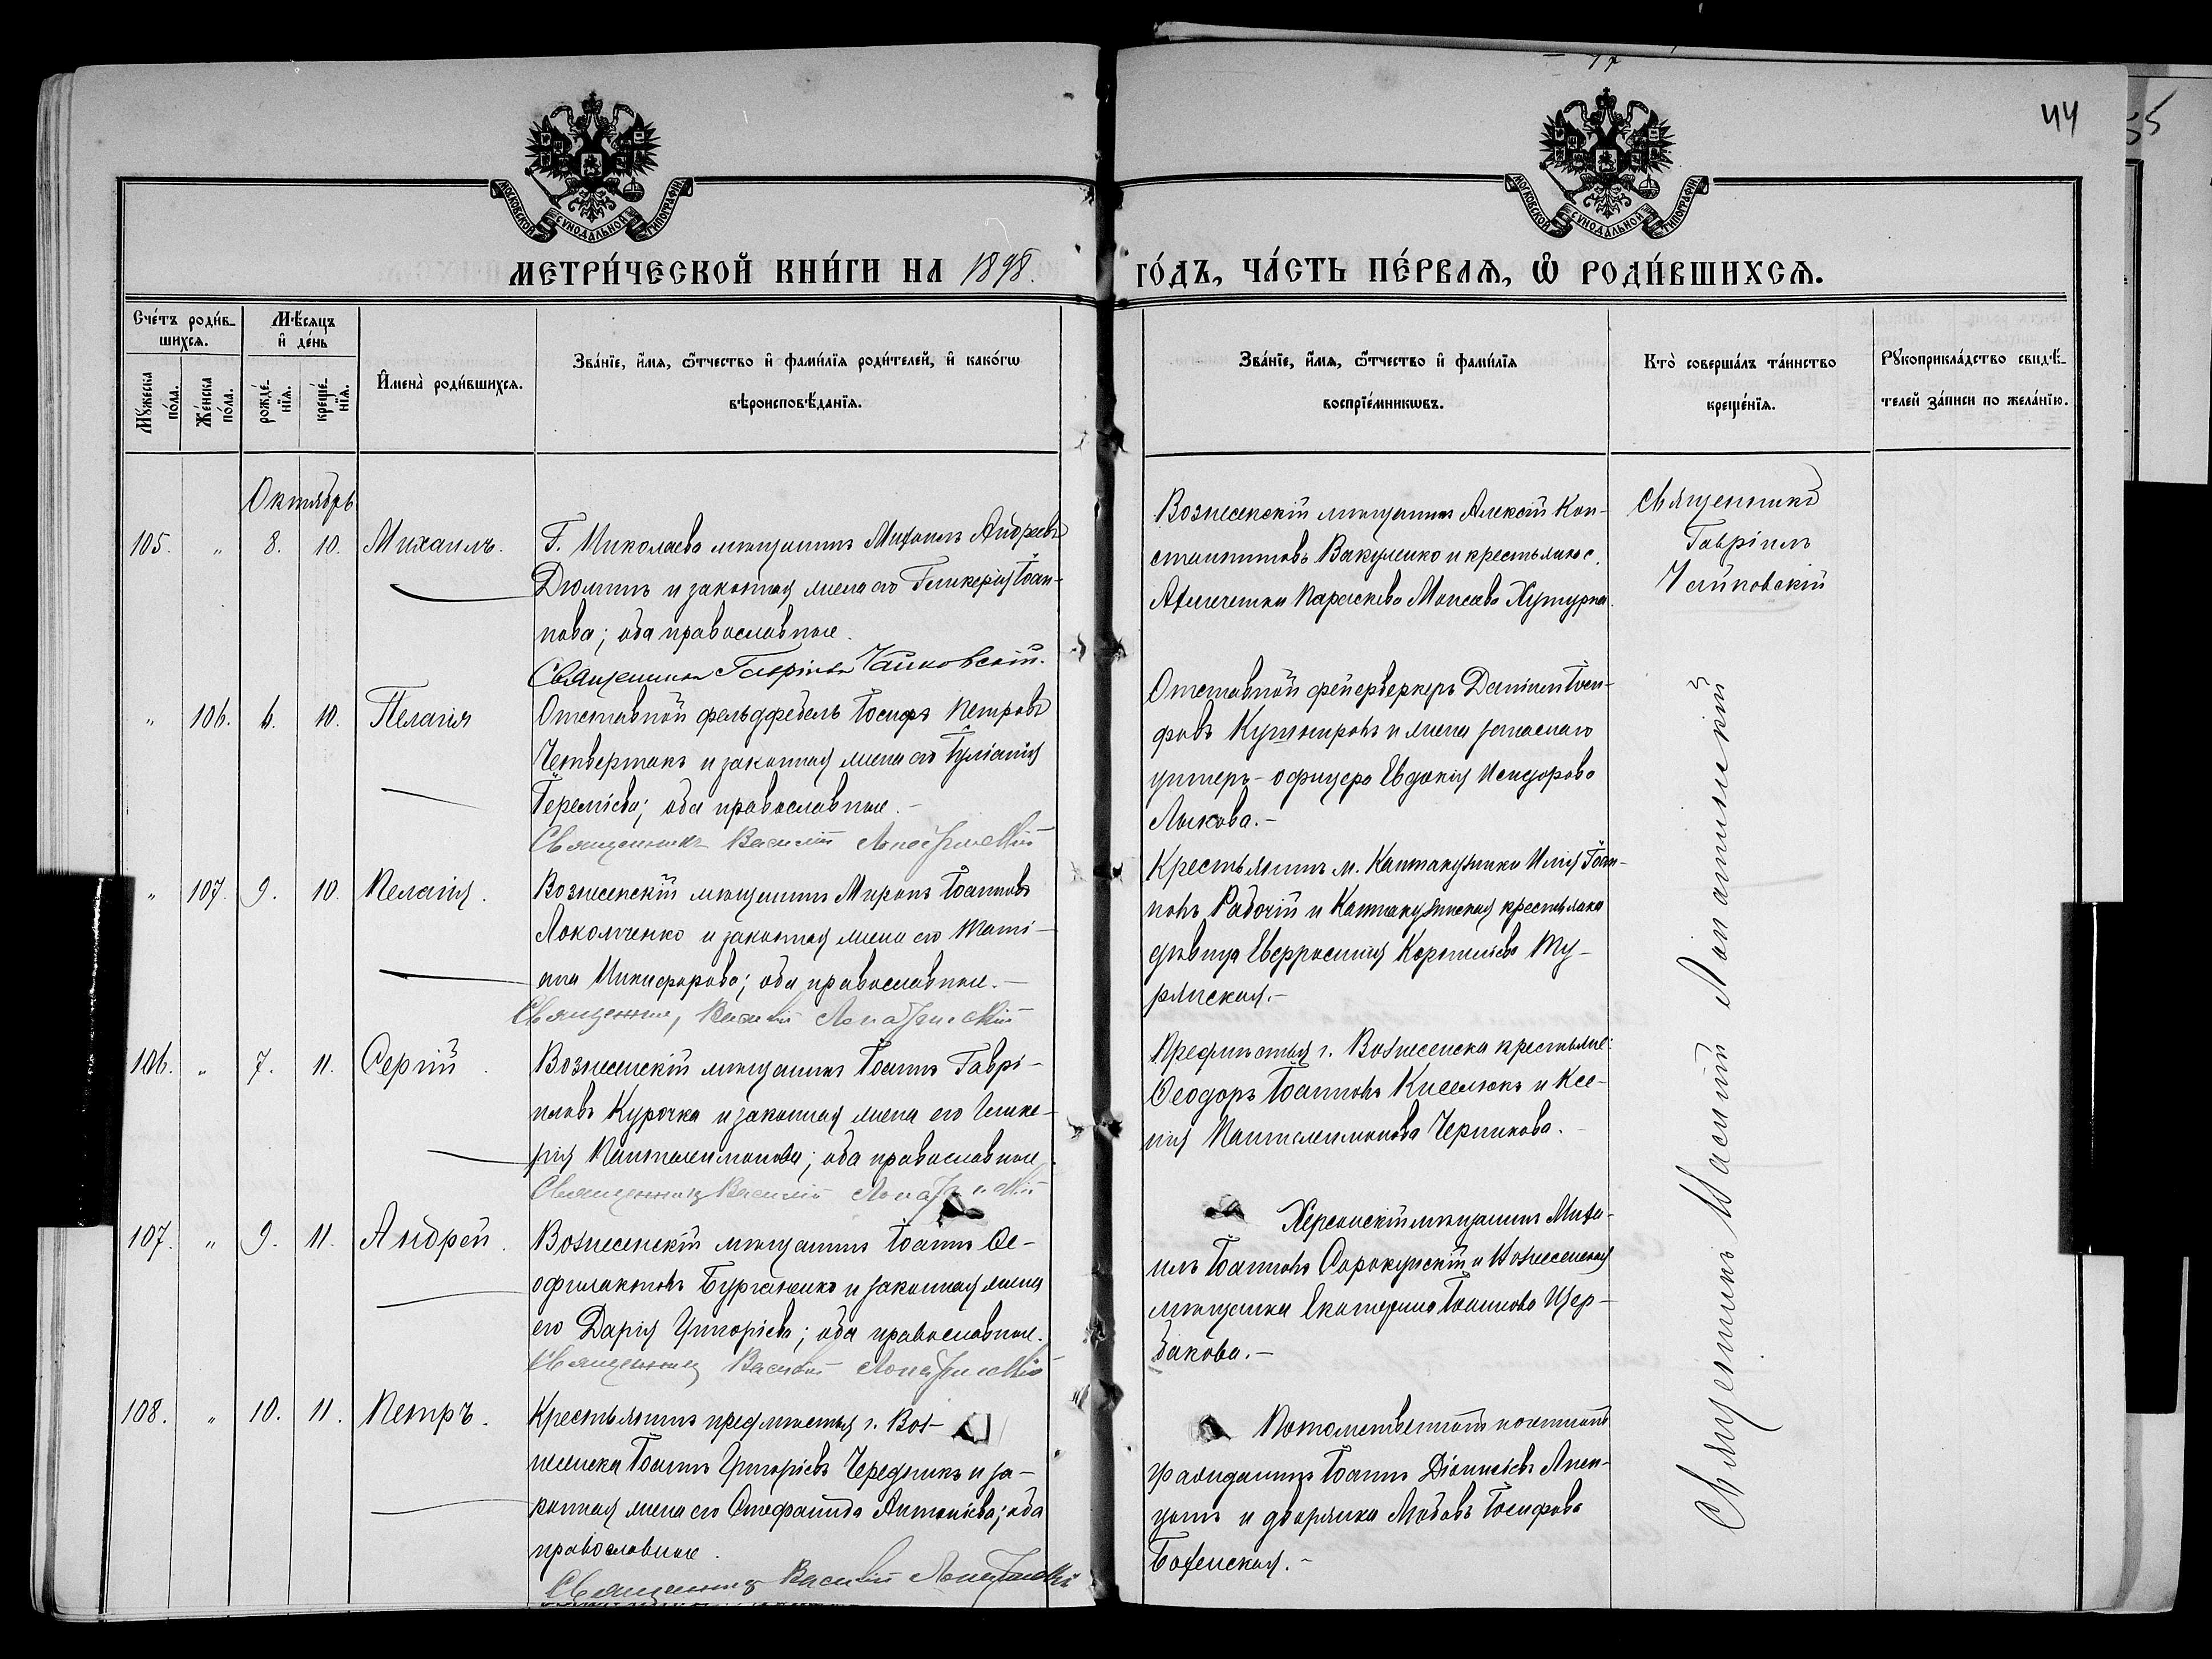 44
55
МОСКОВСКОЙ СѴНОДАЛЬНОЙ ТИПОГРАФІИ.
МОСКОВСКОЙ СѴНОДАЛЬНОЙ ТИПОГРАФІИ.
МЕТРИ́ЧЕСКОЙ КНИ́ГИ НА 1898.
ГО́ДЪ, ЧА́СТЬ ПЕ́РВАѦ, Ѽ РОДИ́ВШИХСѦ.
Сче́тъ роди́в-
шихсѧ.
Мꙋ́жеска по́ла.
Же́нска по́ла.
Мѣ́сѧцъ
и҆ де́нь
рожде́-нїѧ.
креще́-нїѧ.
И҆мена̀ роди́вшихсѧ.
Зва́нїе, и҆́мѧ, ѻ҆́тчество и҆ фами́лїѧ роди́телей, и҆ како́гѡ
вѣроисповѣ́данїѧ.
Зва́нїе, и҆́мѧ, ѻ҆́тчество и҆ фами́лїѧ
воспрїе́мникѡвъ.
Кто̀ соверша́лъ та́инство
креще́нїѧ.
Рꙋкоприкла́дство свидѣ́-
телей за́писи по жела́нїю.
Октябрь
105. " 8. 10. Михаилъ.
Г. Николаева мѣщанинъ Михаилъ Андреевъ
и законная жена его Гликерія Іоан-
нова; оба православные.
Священникъ Гавріилъ Чайковскій.
Вознесенскій мѣщанинъ Алексій Кон-
стантиновъ Вакуленко и крестьянка с.
Параскева Моисеева
Священникъ
Гавріилъ
Чайковскій
" 106. 6. 10. Пелагія
Отставной фельдфебель Іосифъ Петровъ
Четвертакъ и законная жена его Іуліанія
Іереміева; оба православные.-
Священникъ Василій Лопатинскій
Отставной фейерверкеръ Даміанъ
и жена запаснаго
унтеръ-офицера Евдокія Исидорова
Лыкова.-
" 107. 9. 10. Пелагія.
Вознесенскій мѣщанинъ Миронъ Іоанновъ
и законная жена его Тати-
ана Никифорова; оба православные.-
Священникъ Василій Лопатинскій
Крестьянинъ м. Кантакузинки Илія Іоан-
новъ Рабочій и Кантакузинская крестьянка
дѣвица Евфросинія Корниліева Ту-
рянская.-
106. " 7. 11. Сергій.
Вознесенскій мѣщанинъ Іоаннъ Гаврі-
иловъ Курочка и законная жена его Глике-
рія Пантелеимонова; оба православные.
Священникъ Василій Лопатинскій
Предмѣстья г. Вознесенска крестьяне:
Ѳеодоръ Іоанновъ Киселюкъ и Ксе-
нія Пантелеимонова Черникова.-
107. " 9. 11. Андрей.
Вознесенскій мѣщанинъ Іоаннъ Ѳе-
офилактовъ и законная жена
его Дарія Григоріева; оба православные.
Священникъ Василій Лопатинскій
Херсонскій мѣщанинъ Миха-
илъ Іоанновъ Сорокунскій и Вознесенская
мѣщанка Екатерина Іоаннова Щер-
бакова.-
108. " 10. 11. Петръ.
Крестьянинъ предмѣстья г. Воз-
несенска Іоаннъ Григоріевъ Чередникъ и за-
конная жена его Стефанида Антоніева; оба
православные.
Священникъ Василій Лопатинскій
Потомственный почетный
гражданинъ Іоаннъ Діонисіевъ
и дворянка Любовь Іосифова
Боженская.-
Священникъ Василій Лопатинскій